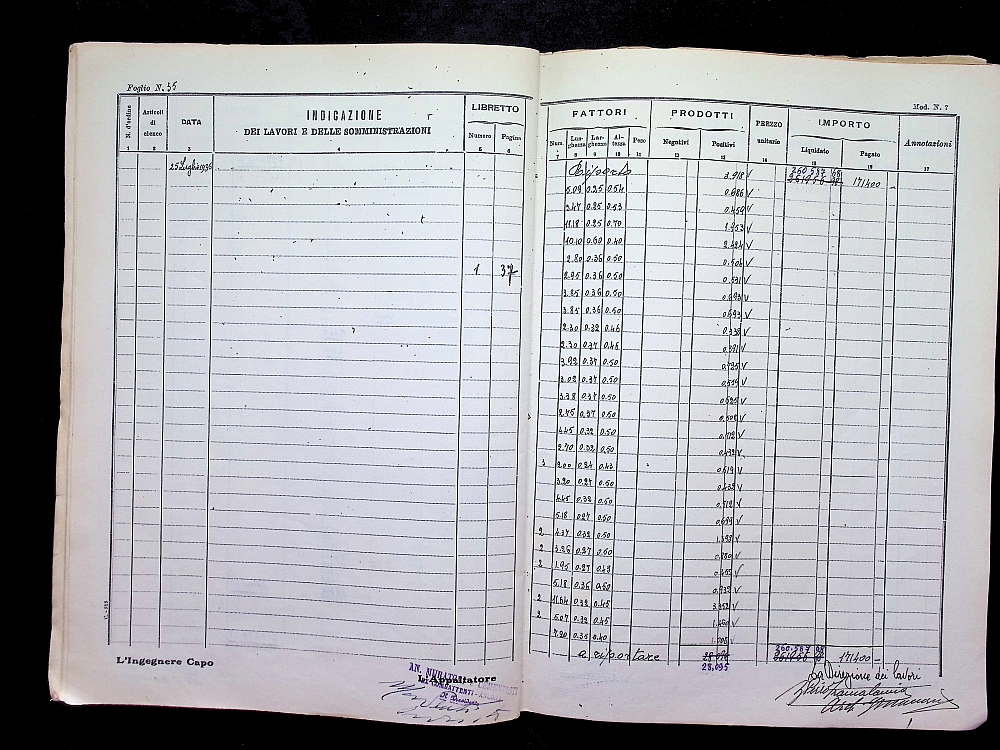 Foglio N. 35
Mod. N. 7
N. d'ordine
Articoli di elenco
DATA
INDICAZIONE
DEI LAVORI E DELLE SOMMINISTRAZIONI
LIBRETTO
Numero
Pagina
FATTORI
Num.
Lunghezza
Larghezza
Altezza
Peso
PRODOTTI
Negativi
Positivi
PREZZO unitario
IMPORTO
Liquidato
Pagato
Annotazioni
1 2 3 4 5 6 7 8 9 10 11 12 13 14 15 16 17
25 Luglio 1936
Riporto 3.918 V 260 587 68 171400 -
5.09 0.25 0.54 0.686 V
3.47 0.25 0.53 0.459 V
11.18 0.25 0.70 1.953 V
10.10 0.60 0.40 2.424 V
2.80 0.36 0.50 0.504 V
1 37
2.95 0.36 0.50 0.531 V
3.85 0.36 0.50 0.693 V
3.85 0.36 0.50 0.693 V
2.30 0.32 0.46 0.338 V
2.30 0.37 0.46 0.391 V
3.92 0.37 0.50 0.725 V
3.02 0.37 0.50 0.559 V
3.38 0.37 0.50 0.625 V
2.75 0.37 0.50 0.508 V
4.45 0.32 0.50 0.712 V
2.70 0.32 0.50 0.432 V
3 2.00 0.24 0.43 0.619 V
3.20 0.27 0.50 0.432 V
4.45 0.32 0.50 0.712 V
5.18 0.27 0.50 0.699 V
2 4.37 0.32 0.50 1.398 V
2 3.26 0.27 0.50 0.880 V
2 1.95 0.27 0.43 0.453 V
5.18 0.36 0.50 0.932 V
2 11.64 0.32 0.45 3.352 V
2 5.07 0.32 0.45 1.460 V
7.20 0.35 0.40 1.008 V
a riportare 28.095 260.587 68 171400 -
28,095
L'Ingegnere Capo
L'Appaltatore
La Direzione dei lavori